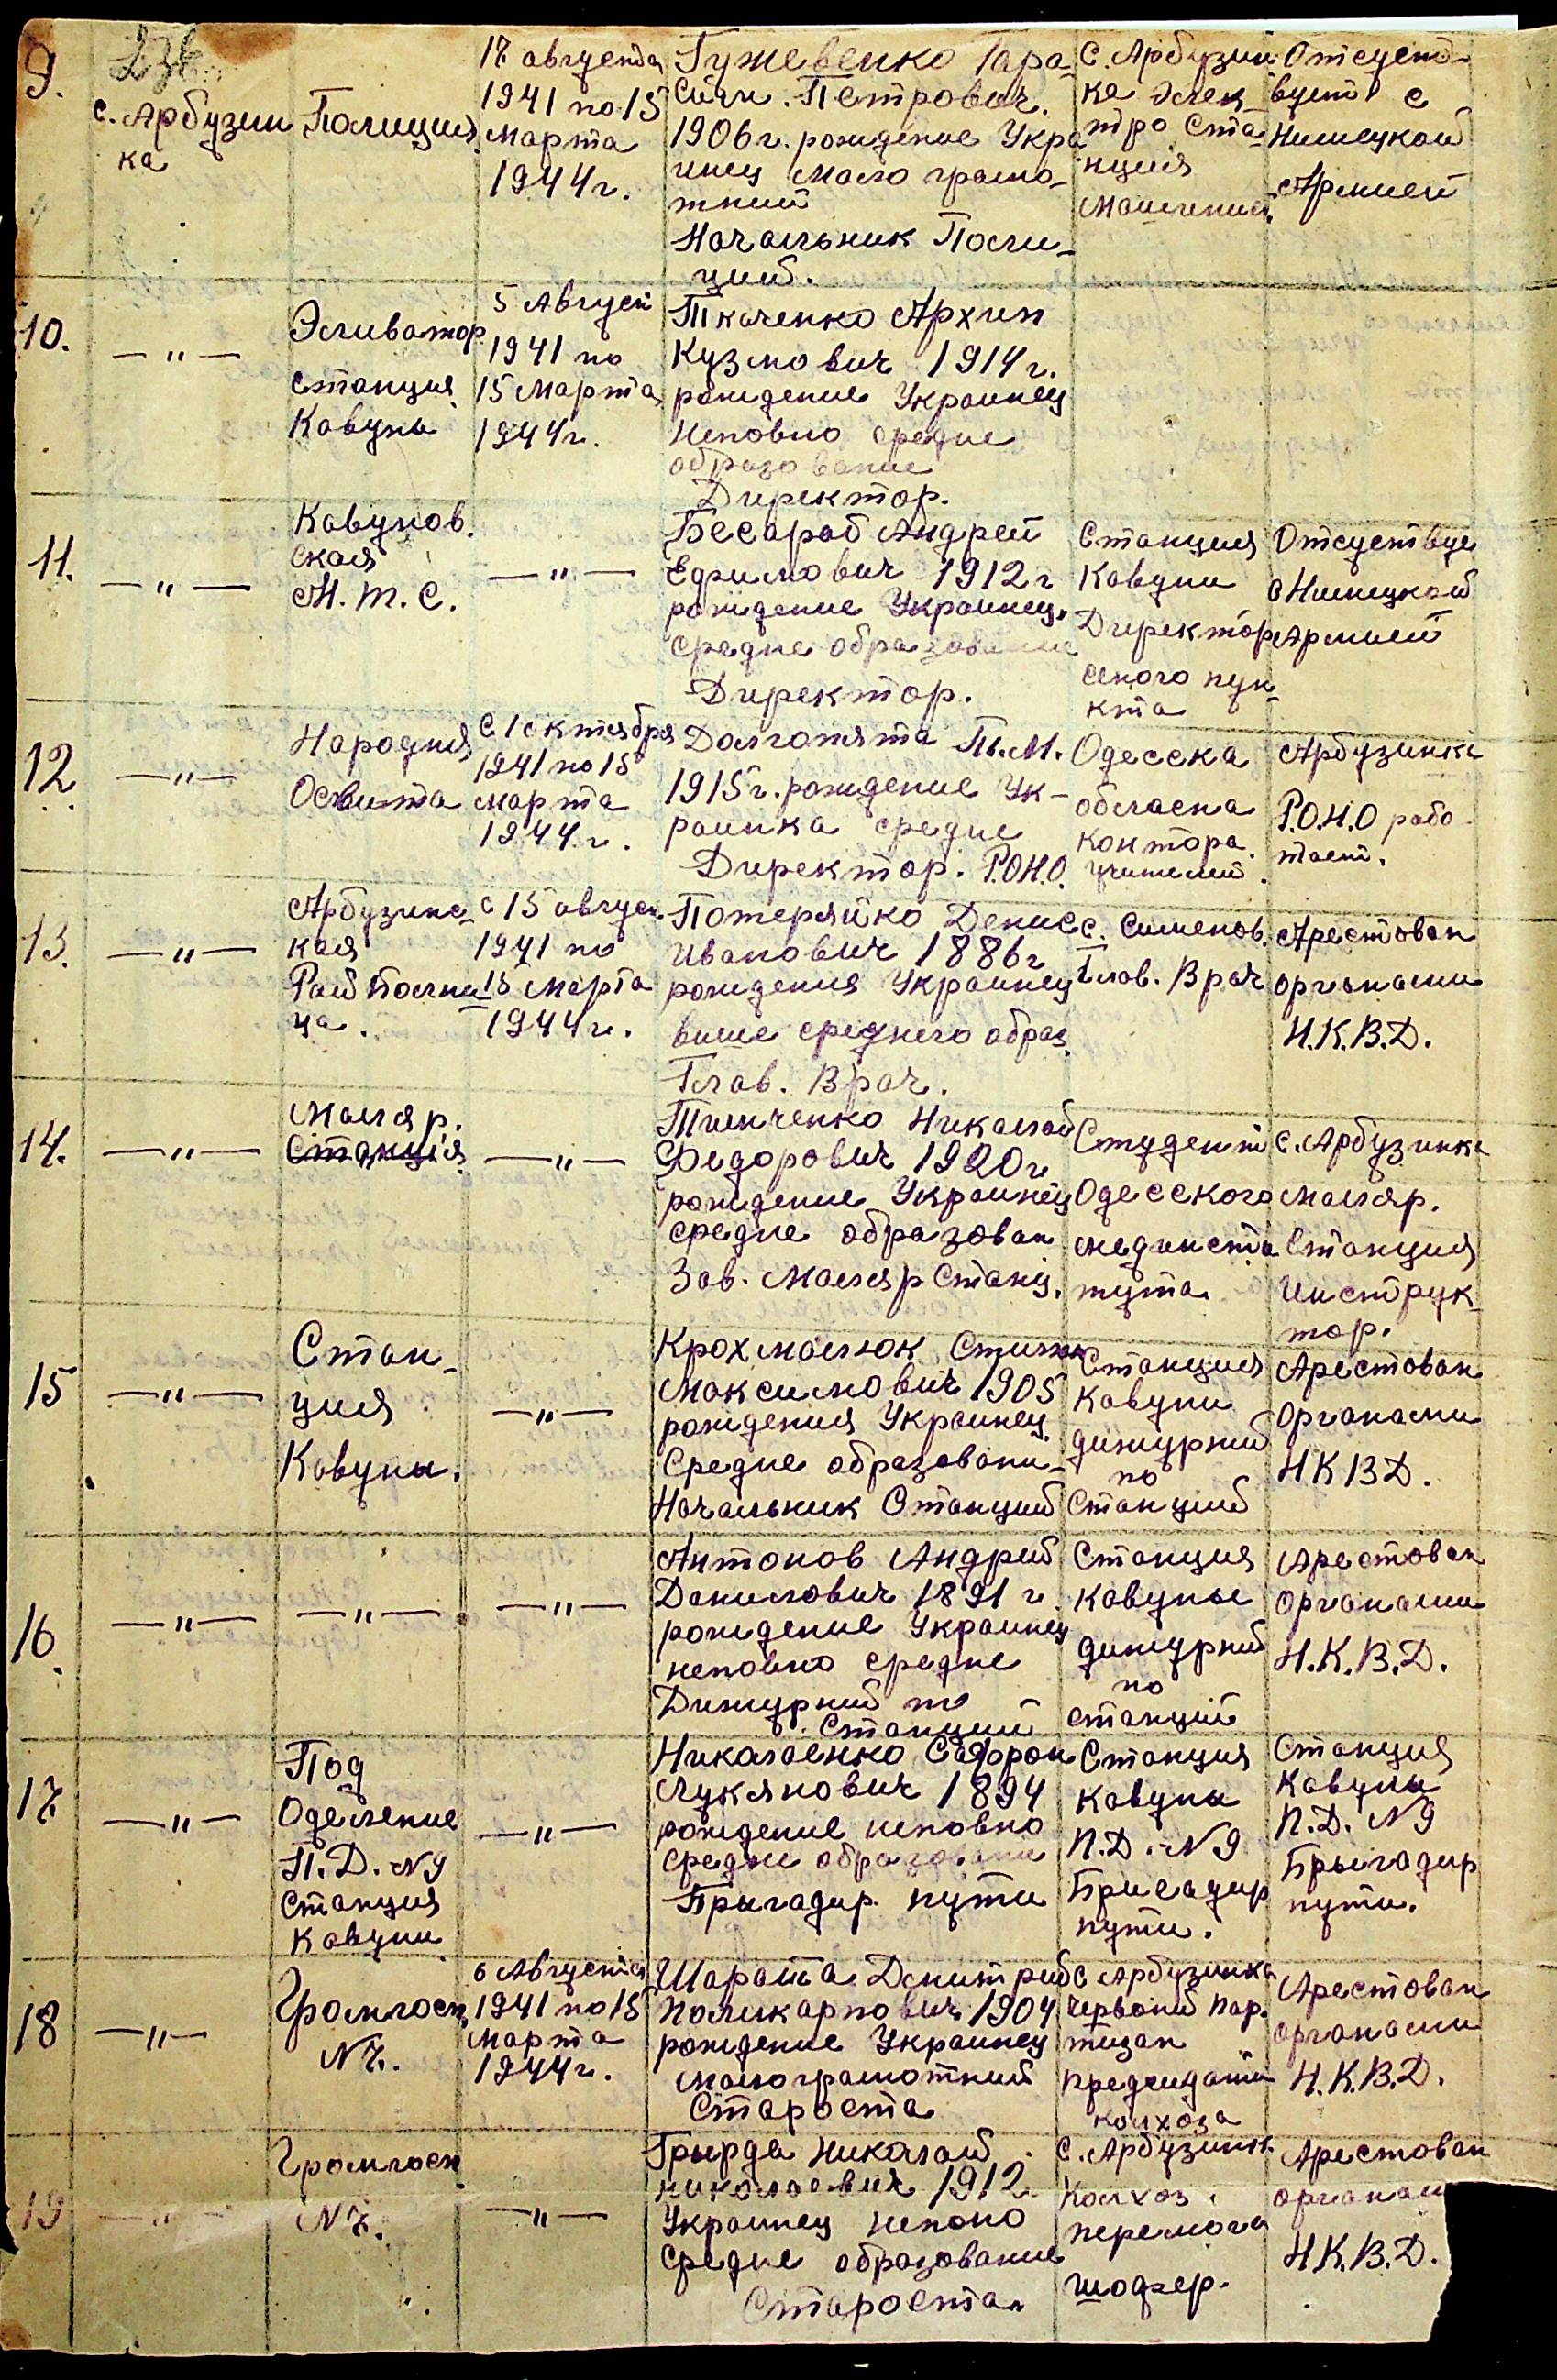 9.
с. Арбузин
ка
Полиция
18 августа
1941 по 15
марта
1944г.
Гужевенко Тара-
Сийн. Петрович.
1906г. рождение Укра
инец мало грамо-
тний
Начальник Поли-
ций.
С. Арбузин
ка Элек
тро Ста-
нция
Машинист.
Отсуст-
вует с
Нимецкой
Армией
10.
— " —
Эливатор
станция
Кавуны
5 Август
1941 по
15 Марта
1944г.
Ткаченко Архип
Кузмович 1914г.
рождение Украинец
Неповно средне
образование
Директор.
11.
— " —
Кавунов.
ская
М.т.с.
— " —
Бесараб Андрей
Ефимович 1912г
рождение Украинец.
Средне образование
Директор.
Станция
Кавуни
Директор
сеного пун
кта
Отсуствуе
с Нимецкой
Армией
12
— " —
Народния
Освита
С 1 октября
1941 по 15
марта
1944.г.
Долготята П.М.
1915г. рождение Ук-
раинка средне
Директор. Р.О.Н.О.
Одесска
обласна
контора.
учителий.
Арбузинка
Р.О.Н.О рабо-
тает.
13.
— " —
Арбузинс
кая
Рай больни
ца.
с 15 август.
1941 по
15 Марта
1944г.
Потеряйко Денис
Иванович 1886г
рождения Украинец
више среднего образ.
Глав. Врач.
с. Сименов.
Глав. Врач
Арестован
органами
Н.К.В.Д.
14.
— " —
Маляр.
Станція
— " —
Тимченко Николай
Федорович 1920г
рождение Украинец
средне образован
Зав. Маляр Станц.
Студент
Одесского
мединсти
тута.
с. Арбузинка
Маляр.
Станция
Инструк-
тор.
15
— " —
Стан-
ция
Кавуны.
— " —
Крохмалюк Степан
Максимович 1905
рождения Украинец.
Средне образовани-
Начальник Станций
Станция
Кавуни
дижурний
по
Станций
Арестован
органами
НКВД.
16.
— " —
— " —
— " —
Антонов Андрий
Данилович 1891г.
рождение Украинец
неповно средне
Дижурний по
Станций
Станция
Кавуны
дижурний
по
станций
Арестован
органами
Н.К.В.Д.
17.
— " —
Под
Оделение
П.Д. №9
Станция
Кавуни
— " —
Николаенко Сафрон
Лукянович 1894
рождение неповно
средне образовани
Брыгадир пути
Станция
Кавуны
П.Д. №9
Бригадир
пути.
Станция
Кавуны
П.Д. №9
Брыгадир
пути.
18
— " —
Громгосп
№7.
6 Августа
1941 по 15
Марта
1944г.
Шарата Дмитрий
Поликарпович 1904
рождение Украинец
малограмотний
Староста
с Арбузинка
Червоний пар-
тизан
предсидатил
колхоза
Арестован
органами
Н.К.В.Д.
19
— " —
Громгосп
№7.
— " —
Грырда Николай
николаевич 1912
Украинец непоно
средне образование
Староста
С. Арбузинк.
Колхоз
перемога
шофер.
Арестован
органам
Н.К.В.Д.